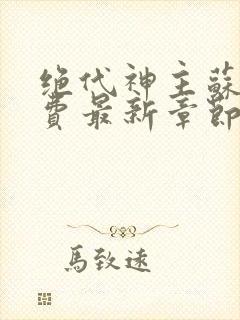 绝代神主蘇
費最新章節
馬致遠